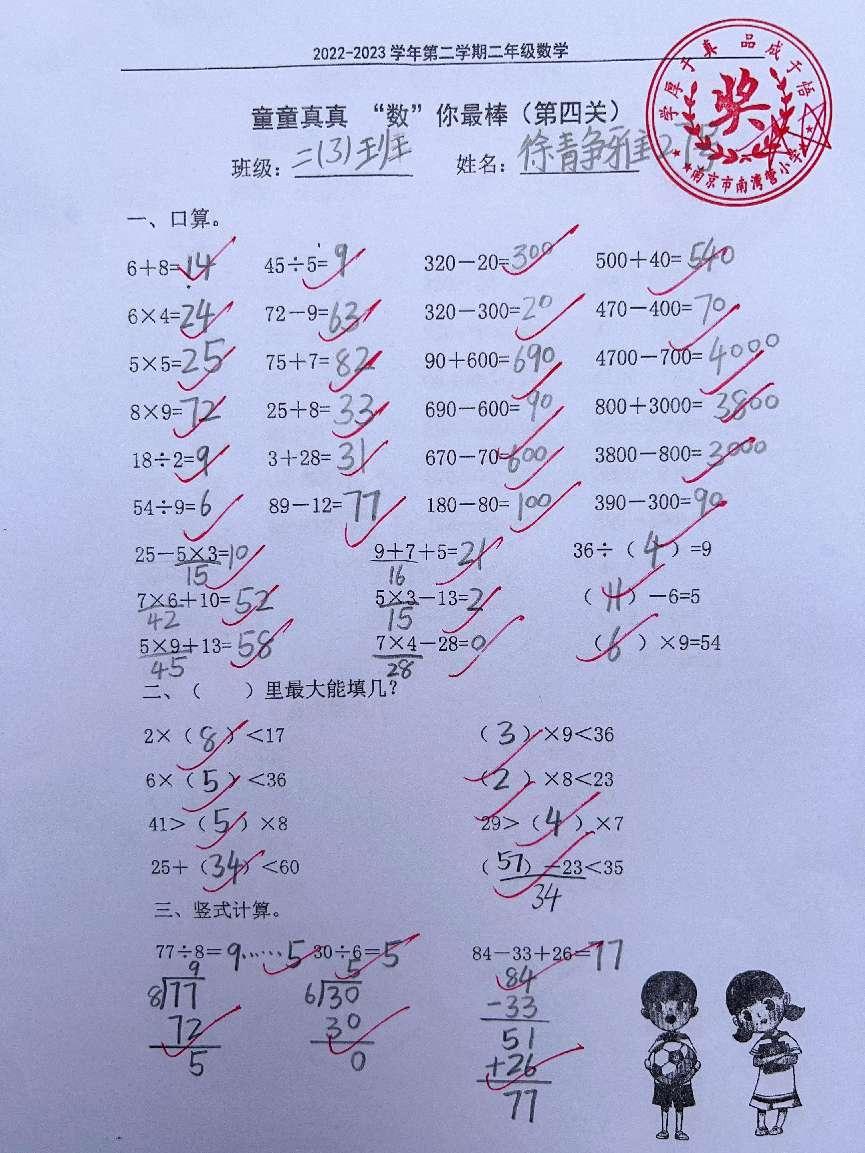 2022-2023学年第二学期二年级数学
童童真真 “数”你最棒（第四关）
学厚于真 品成于悟
奖
南京市南湾营小学
班级：二(3)班 姓名：徐静雅27号
一、口算。
6＋8=14 45÷5=9 320－20=300 500＋40=540
6×4=24 72－9=63 320－300=20 470－400=70
5×5=25 75＋7=82 90＋600=690 4700－700=4000
8×9=72 25＋8=33 690－600=90 800＋3000=3800
18÷2=9 3＋28=31 670－70=600 3800－800=3000
54÷9=6 89－12=77 180－80=100 390－300=90
25－5×3=10 9＋7＋5=21 36÷（4）=9
15 16
7×6＋10=52 5×3－13=2 （11）－6=5
42 15
5×9＋13=58 7×4－28=0 （6）×9=54
45 28
二、（ ）里最大能填几？
2×（8）＜17 （3）×9＜36
6×（5）＜36 （2）×8＜23
41＞（5）×8 29＞（4）×7
25＋（34）＜60 （57）－23＜35
34
三、竖式计算。
77÷8＝9……5 30÷6＝5 84－33＋26＝77
9 5 84
8 77 6 30 －33
72 30 51
5 0 ＋26
77